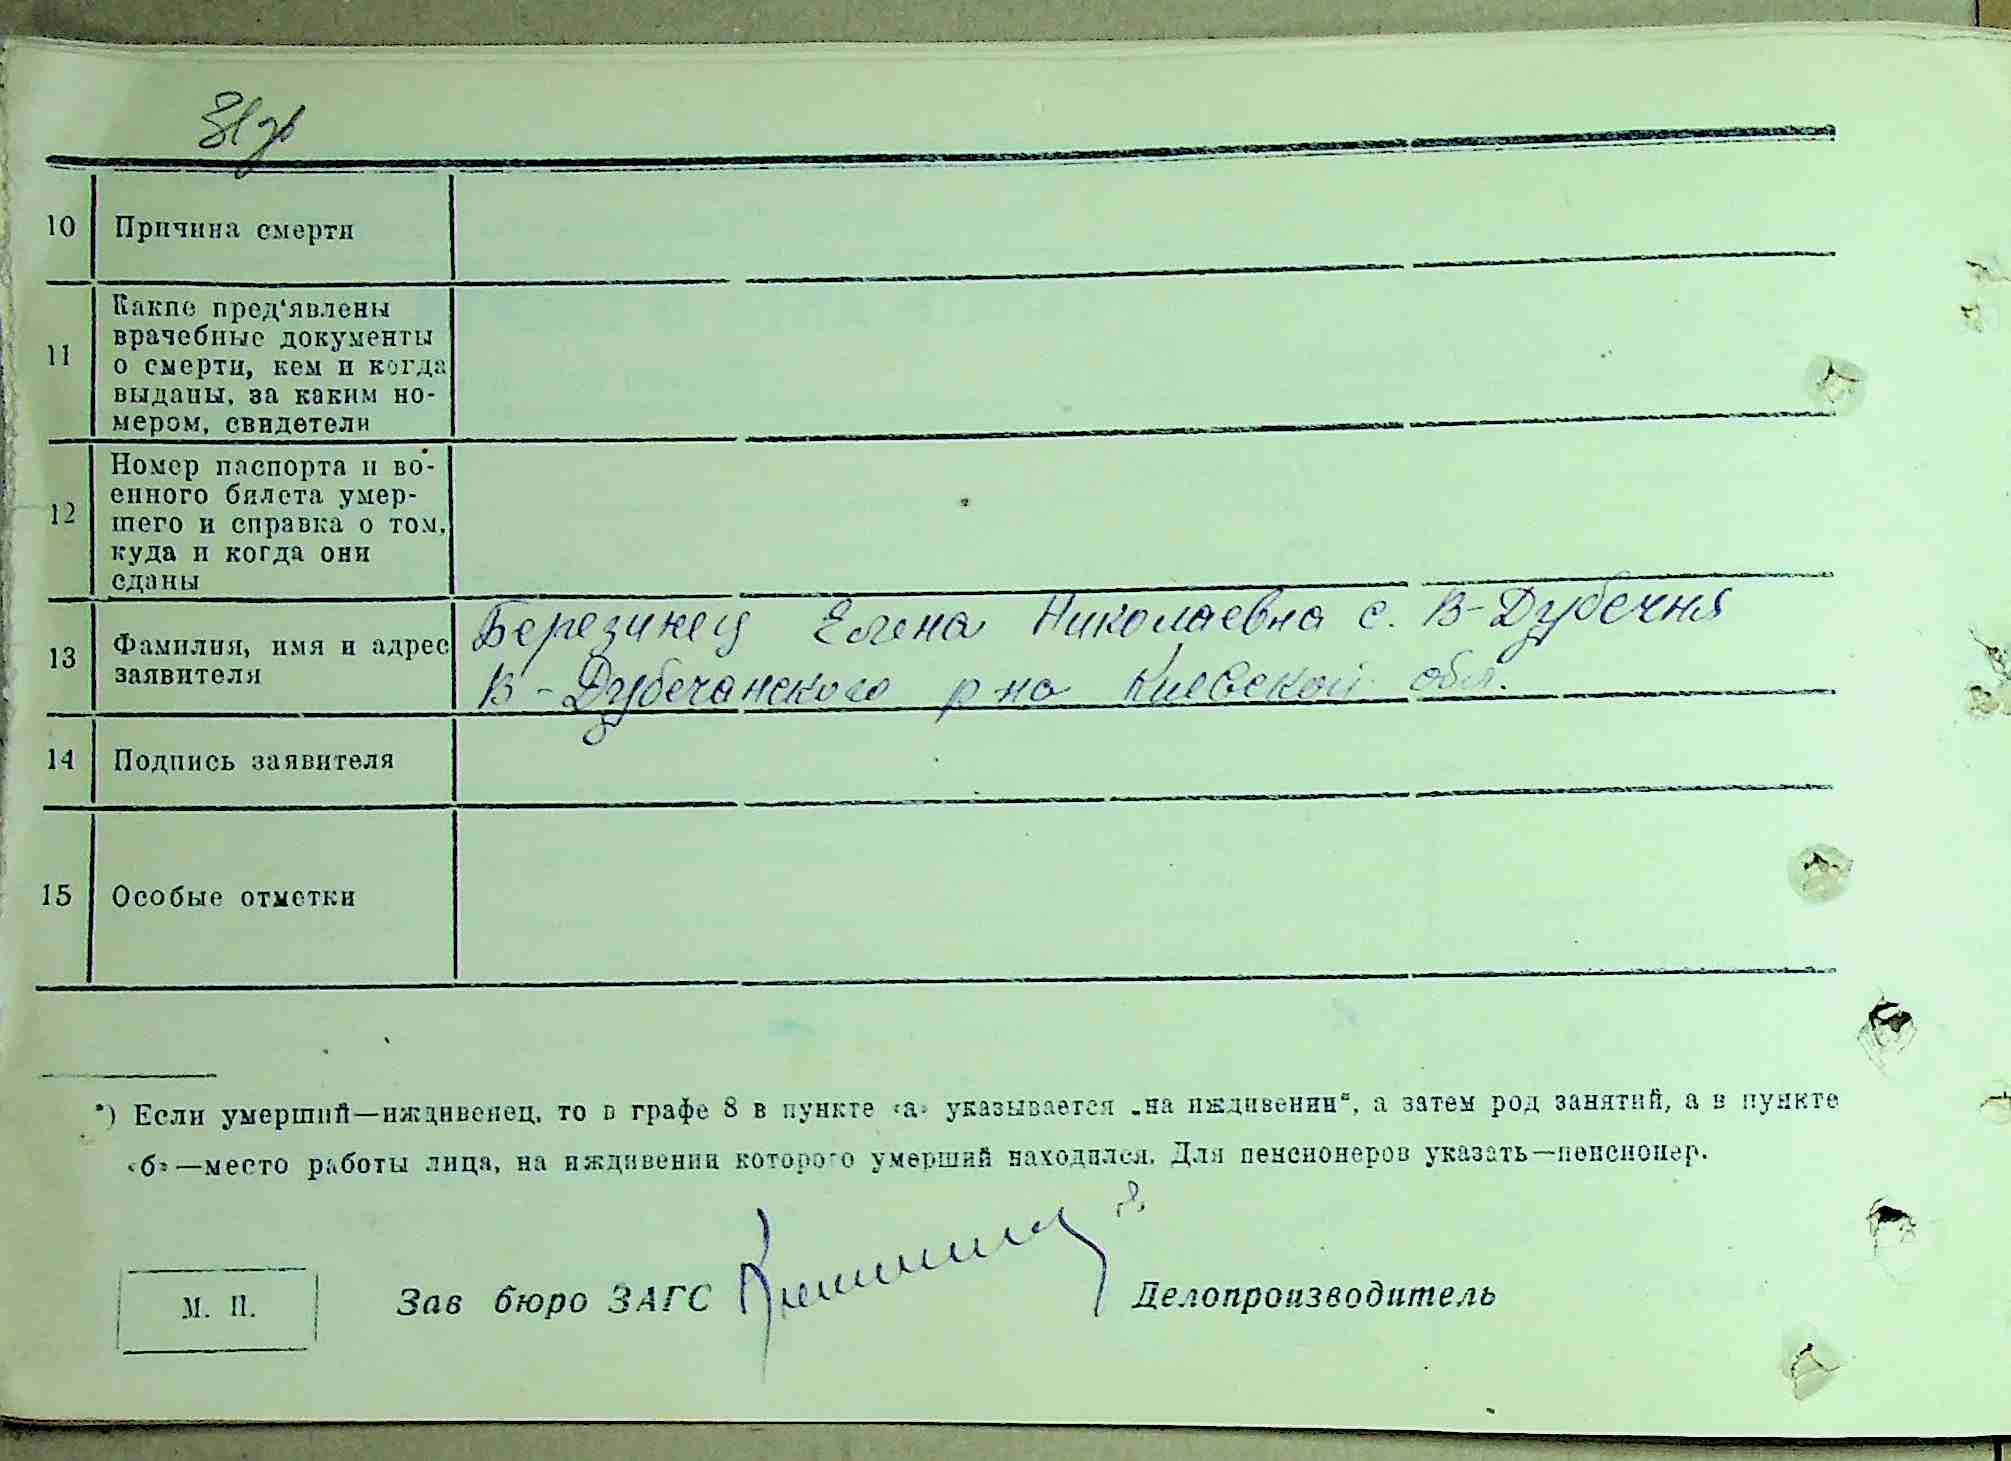 10 Причина смерти
11 Какие пред‘явлены
врачебные документы
о смерти, кем и когда
выданы, за каким но-
мером, свидетели
12 Номер паспорта и во-
енного билета умер-
шего и справка о том,
куда и когда они
сданы
13 Фамилия, имя и адрес
заявителя
Березинец Елена Николаевна с. В-Дубечня
В-Дубечанского р-на Киевской обл.
14 Подпись заявителя
15 Особые отметки
*) Если умерший—иждивенец, то в графе 8 в пункте «а» указывается „на иждивении“, а затем род занятий, а в пункте
«б»—место работы лица, на иждивении которого умерший находился. Для пенсионеров указать—пенсионер.
М. П. Зав бюро ЗАГС Делопроизводитель